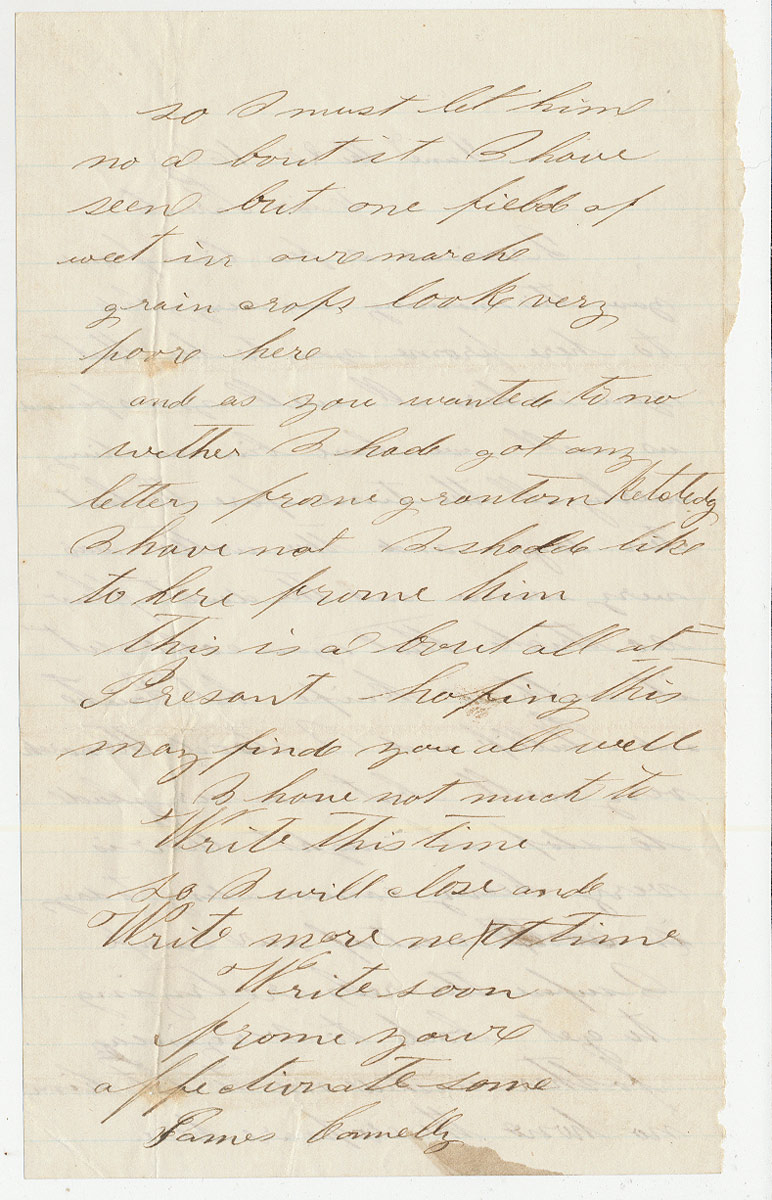 so I must let him
no a bout it I have
seen but one field of
weet in oure march
grain crops look very
poore here
and as you wanted to no
wether I hade got any
letters frome grantom
I have not I sholde like
to here frome him
This is a bout all at
Presant hoping this
may finde you all well
I have not much to
Write this time
so I will close ande
Write more next time
Write soon
frome youre
affectionate some
James Connelly